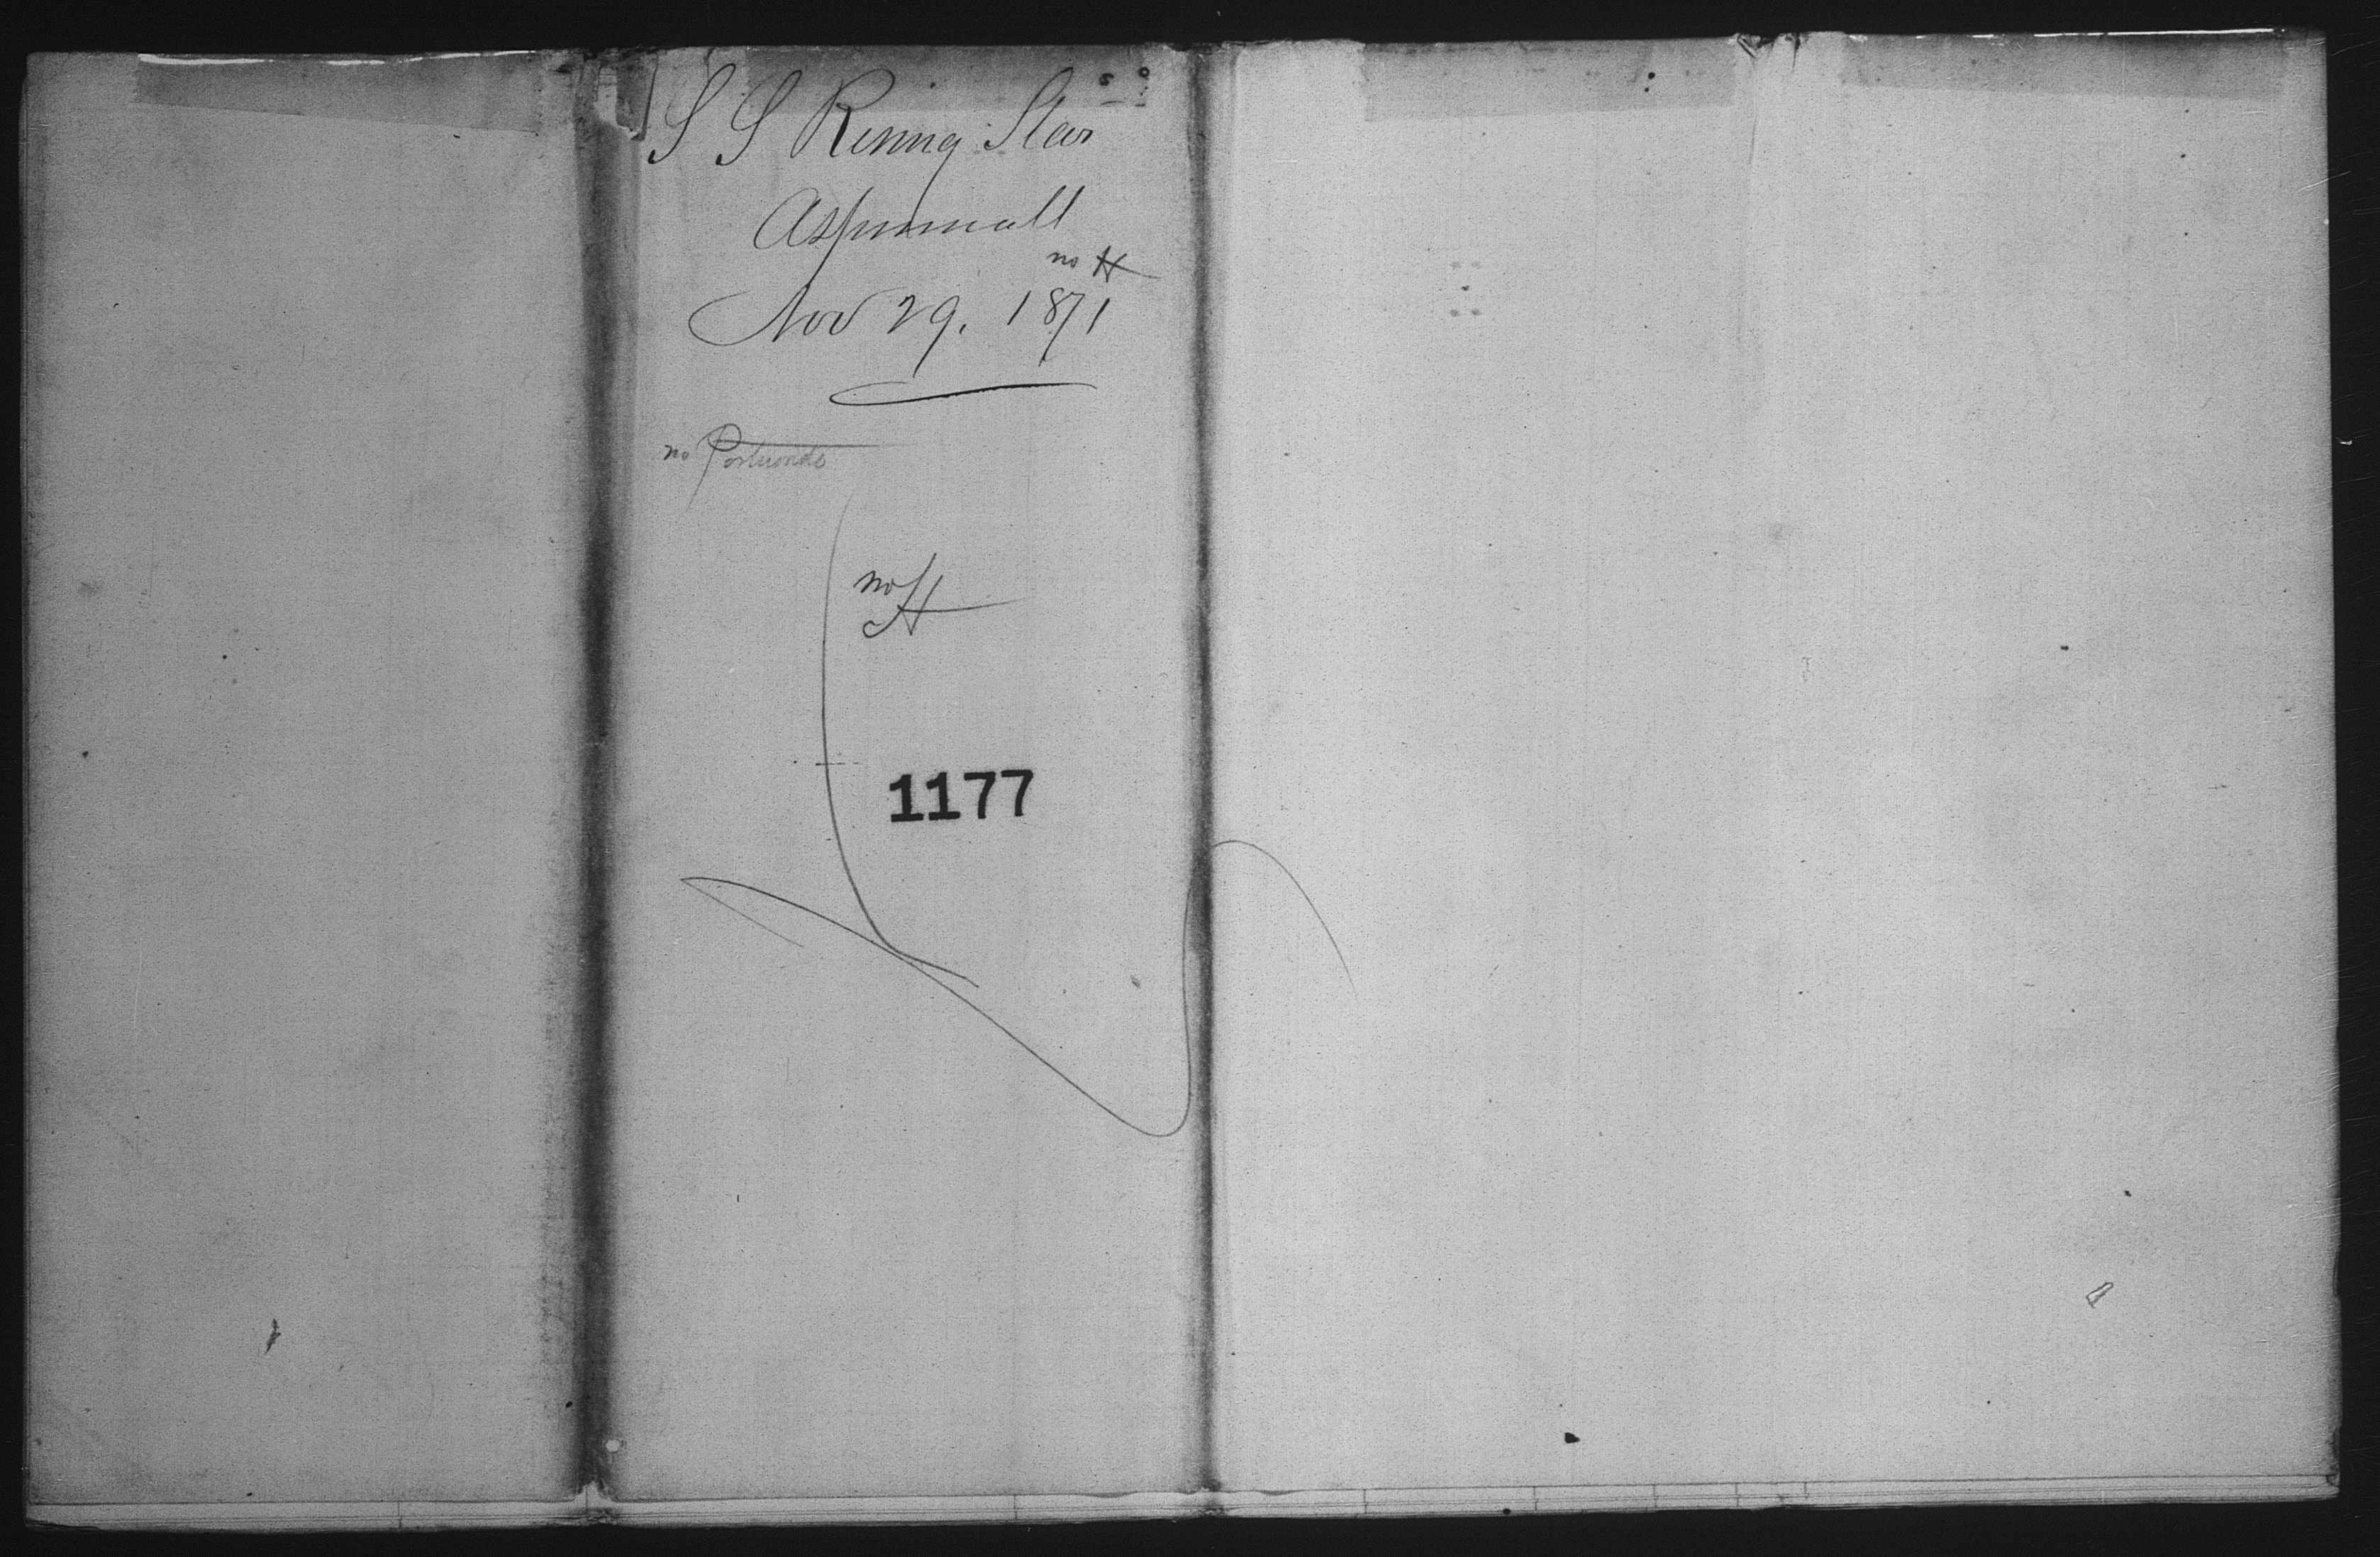 S S Rising Star
Aspinwall
no H
Nov 29. 1871
no Portuondo
no H
1177